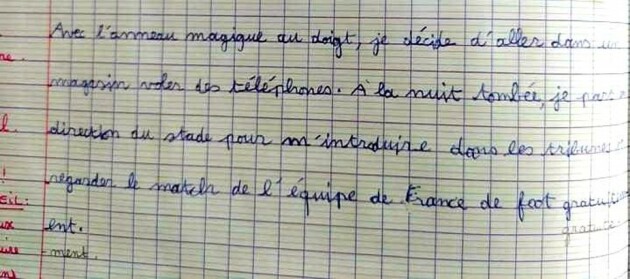 Avec l'anneau magique au doigt, je décide d'aller dans un
magasin voler des téléphones. À la nuit tombée, je pars
direction du stade pour m'introduire dans les tribunes
regarder le match de l'équipe de France de foot gratuitem
ent.
ment.